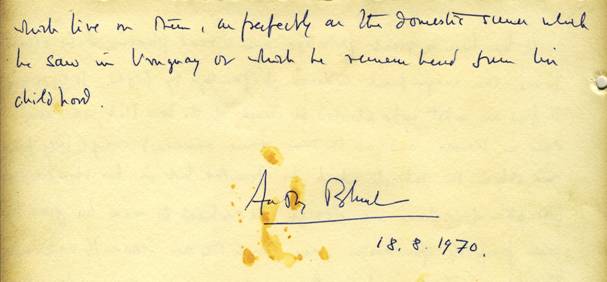 which live on them, as perfectly as the domestic scenes which
he saw in Uruguay or which he remembered from his
childhood.
Anthony Blunt
18.8.1970.